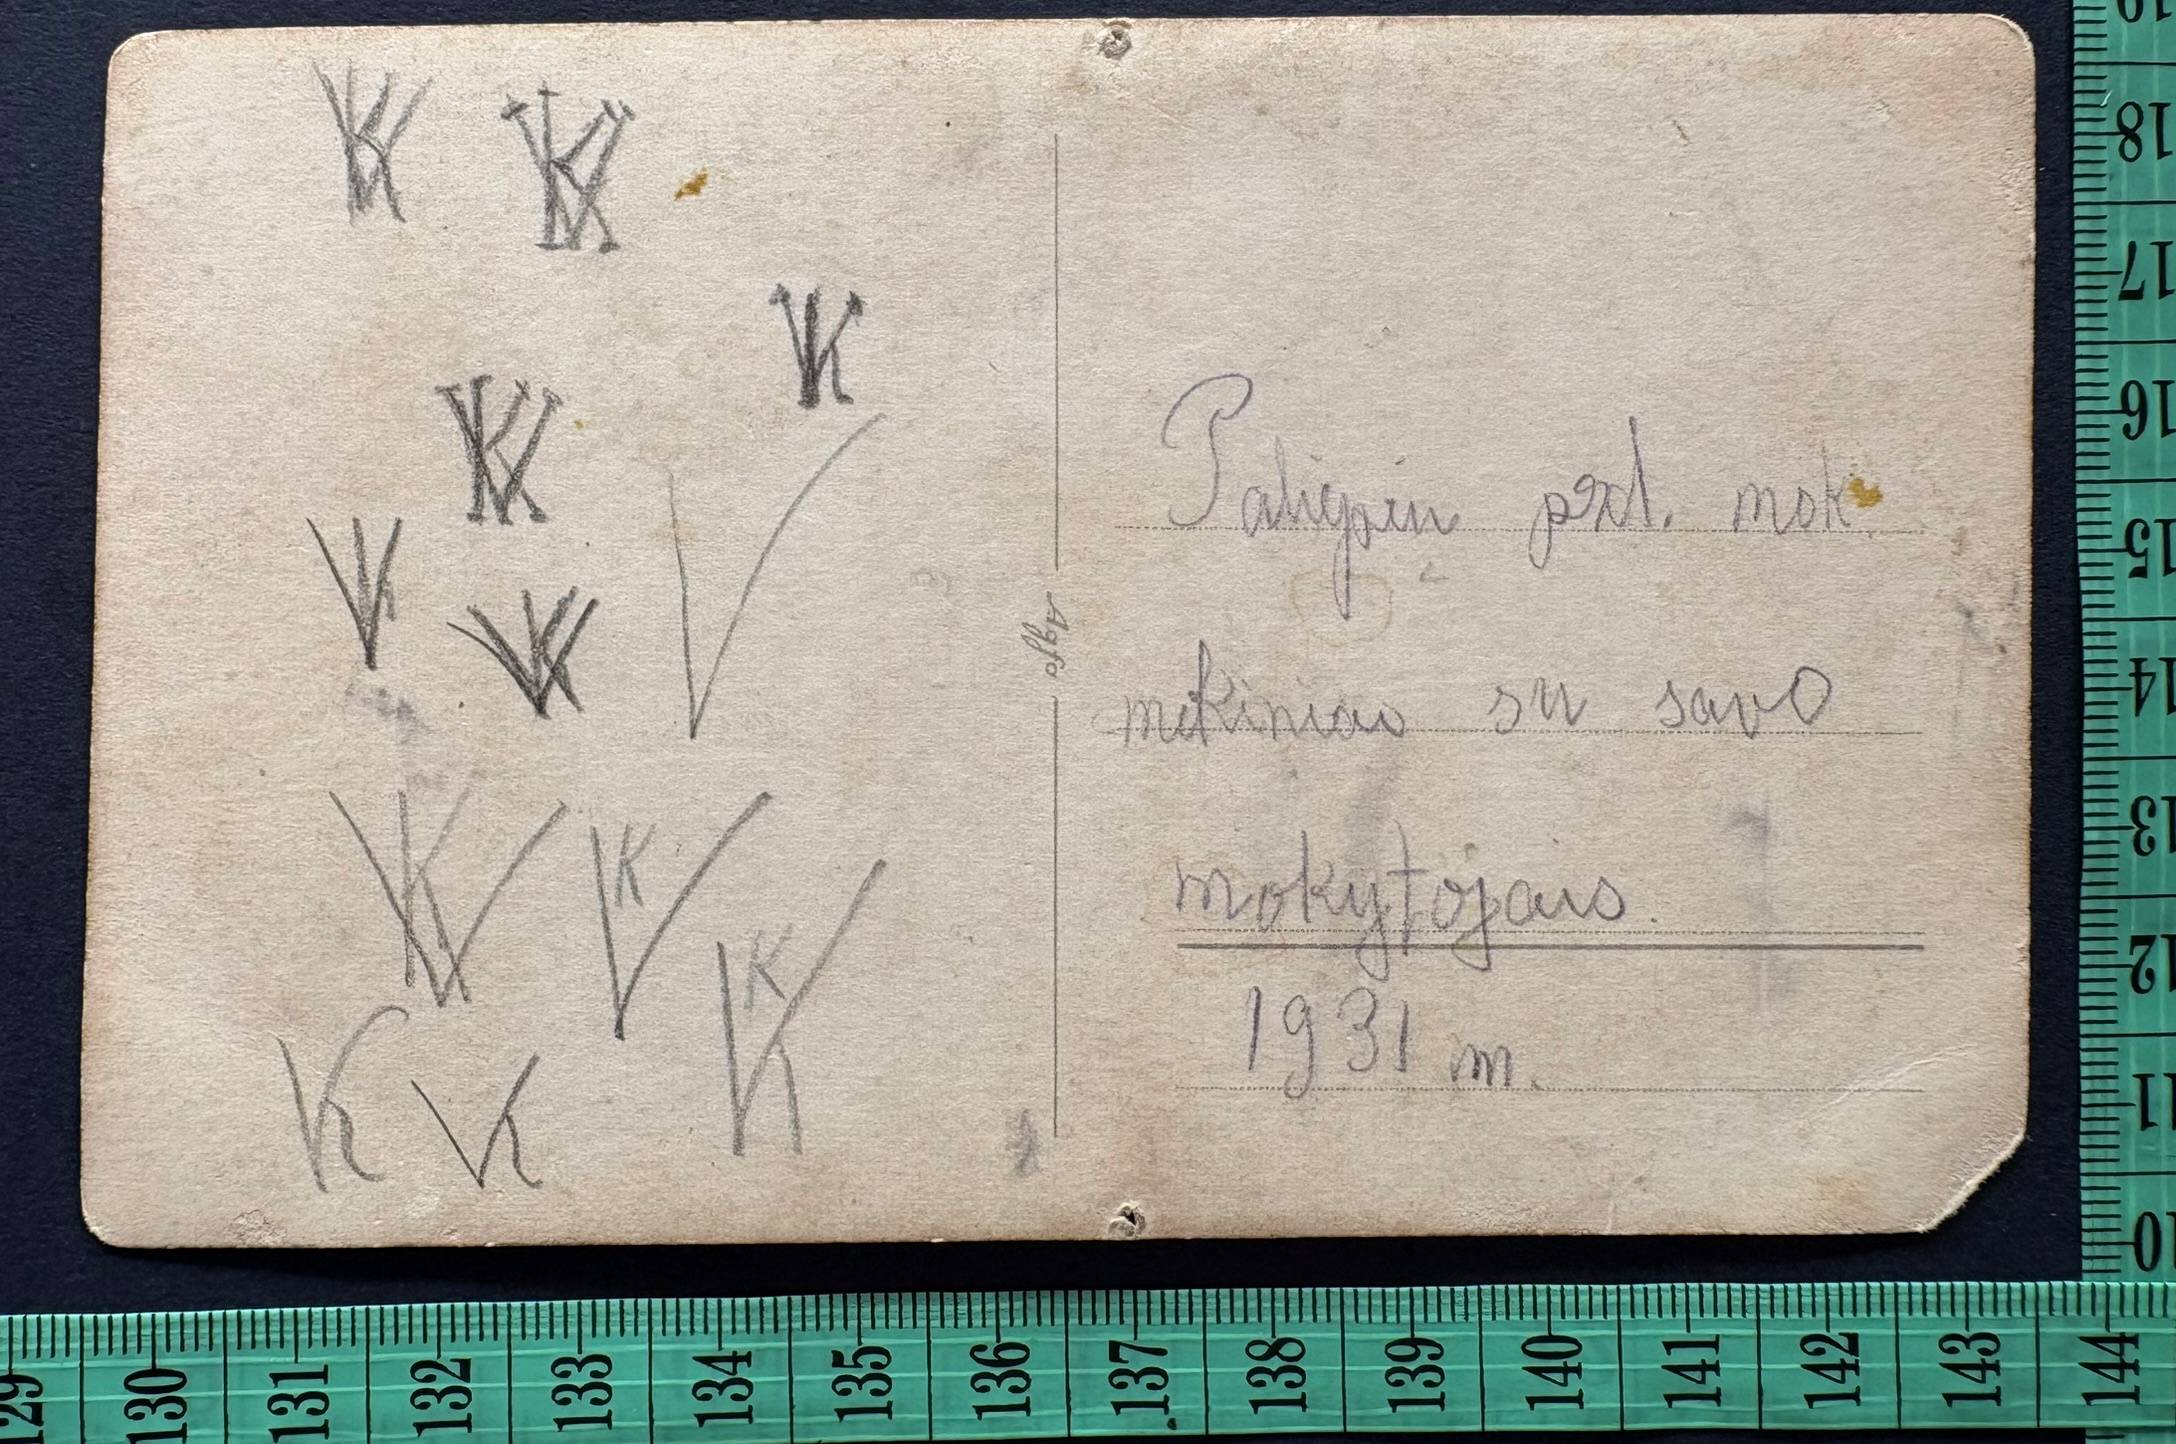 VK
VK
VK
VK
VK
VK
V
VK
VK
VK
VK
VK
Agfa
prd. mok.
mokiniai su savo
mokytojais.
1931 m.
19
18
17
16
15
14
13
12
11
10
129 130 131 132 133 134 135 136 137 138 139 140 141 142 143 144